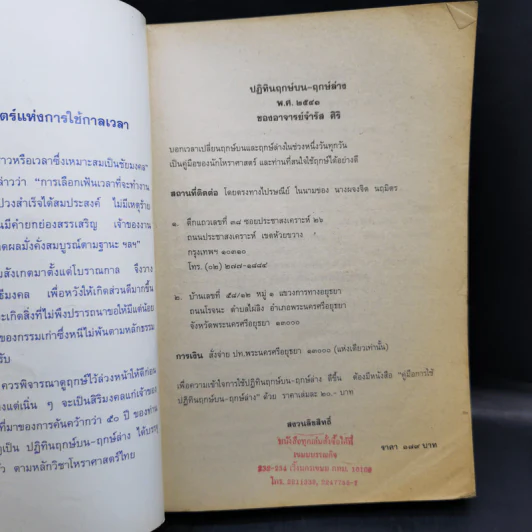 ตร์แห่งการใช้กาลเวลา
าวหรือเวลาซึ่งเหมาะสมเป็นชัยมงคล"
ล่าวว่า "การเลือกเฟ้นเวลาที่จะทำงาน
ปวงสำเร็จได้สมประสงค์ ไม่มีเหตุร้าย
นมีค่ายกย่องสรรเสริญ เจ้าของงาน
ดผลมั่งคั่งสมบูรณ์ตามฐานะ ฯลฯ"
มสังเกตมาตั้งแต่โบราณกาล จึงวาง
ธีมงคล เพื่อหวังให้เกิดส่วนดีมากขึ้น
ะเกิดสิ่งที่ไม่พึงปรารถนาขอให้มีแต่น้อย
ของกรรมเก่าซึ่งหนีไม่พ้นตามหลักธรรม
รับ
ควรพิจารณาดูฤกษ์ไว้ล่วงหน้าให้ดีก่อน
งแต่เนิ่น ๆ จะเป็นสิริมงคลแก่เจ้าของ
ที่มาของการค้นคว้ากว่า ๕๐ ปี ของท่าน
เป็น ปฏิทินฤกษ์บน-ฤกษ์ล่าง ได้บรรจุ
ว ตามหลักวิชาโหราศาสตร์ไทย
ปฏิทินฤกษ์บน-ฤกษ์ล่าง
พ.ศ. ๒๕๔๑
ของอาจารย์จำรัส ศิริ
บอกเวลาเปลี่ยนฤกษ์บนและฤกษ์ล่างในช่วงหนึ่งวันทุกวัน
เป็นคู่มือของนักโหราศาสตร์ และท่านที่สนใจใช้ฤกษ์ได้อย่างดี
สถานที่ติดต่อ โดยตรงทางไปรษณีย์ ในนามของ นางผจงจิต นฤมิตร
๑. ตึกแถวเลขที่ ๓๘ ซอยประชาสงเคราะห์ ๒๖
ถนนประชาสงเคราะห์ เขตห้วยขวาง
กรุงเทพฯ ๑๐๓๑๐
โทร. (๐๒) ๒๗๗-๑๘๔๔
๒. บ้านเลขที่ ๕๘/๑๒ หมู่ ๑ แขวงการทางอยุธยา
ถนนโรจนะ ตำบลไผ่ลิง อำเภอพระนครศรีอยุธยา
จังหวัดพระนครศรีอยุธยา ๑๓๐๐๐
การเงิน สั่งจ่าย ปท.พระนครศรีอยุธยา ๑๓๐๐๐ (แห่งเดียวเท่านั้น)
เพื่อความเข้าใจการใช้ปฏิทินฤกษ์บน-ฤกษ์ล่าง ดีขึ้น ต้องมีหนังสือ "คู่มือการใช้
ปฏิทินฤกษ์บน-ฤกษ์ล่าง" ด้วย ราคาเล่มละ ๒๐.- บาท
สงวนลิขสิทธิ์
ราคา ๑๙๙ บาท
หนังสือทุกเล่มสั่งซื้อได้ที่
เกษมบรรณกิจ